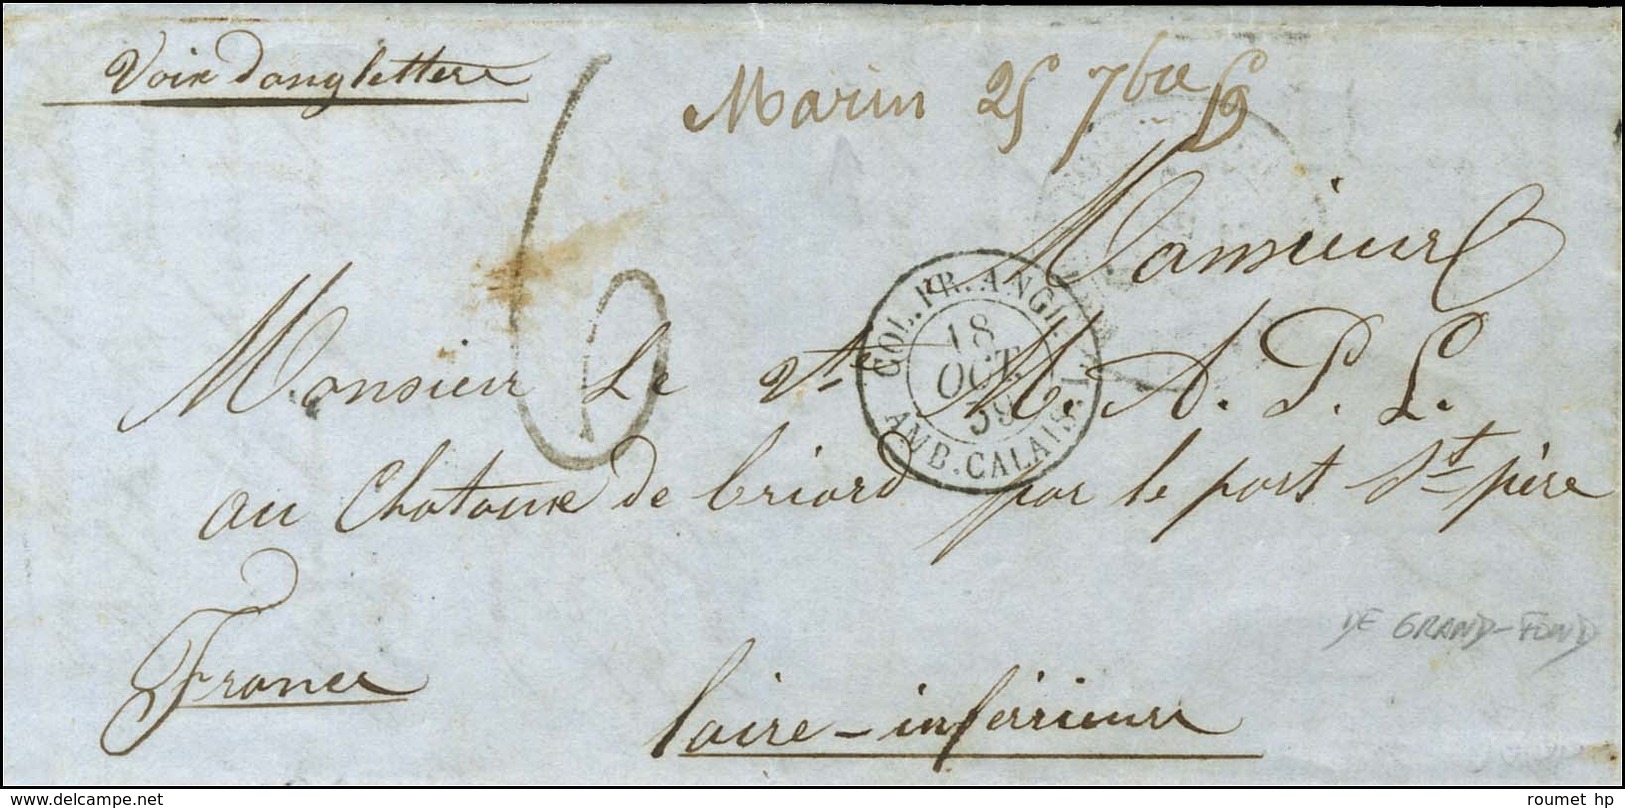 Voix dangletterre
Marin 25 7bre 59
6
Monsieur
COL. FR. ANGL.
18
OCT.
59
AMB. CALAIS
Monsieur Le Vte M. A. P. L.
au Chataux de briord par le port St père
France
DE GRAND-FOND
loire-inférieure
www.delcampe.net
roumet hp